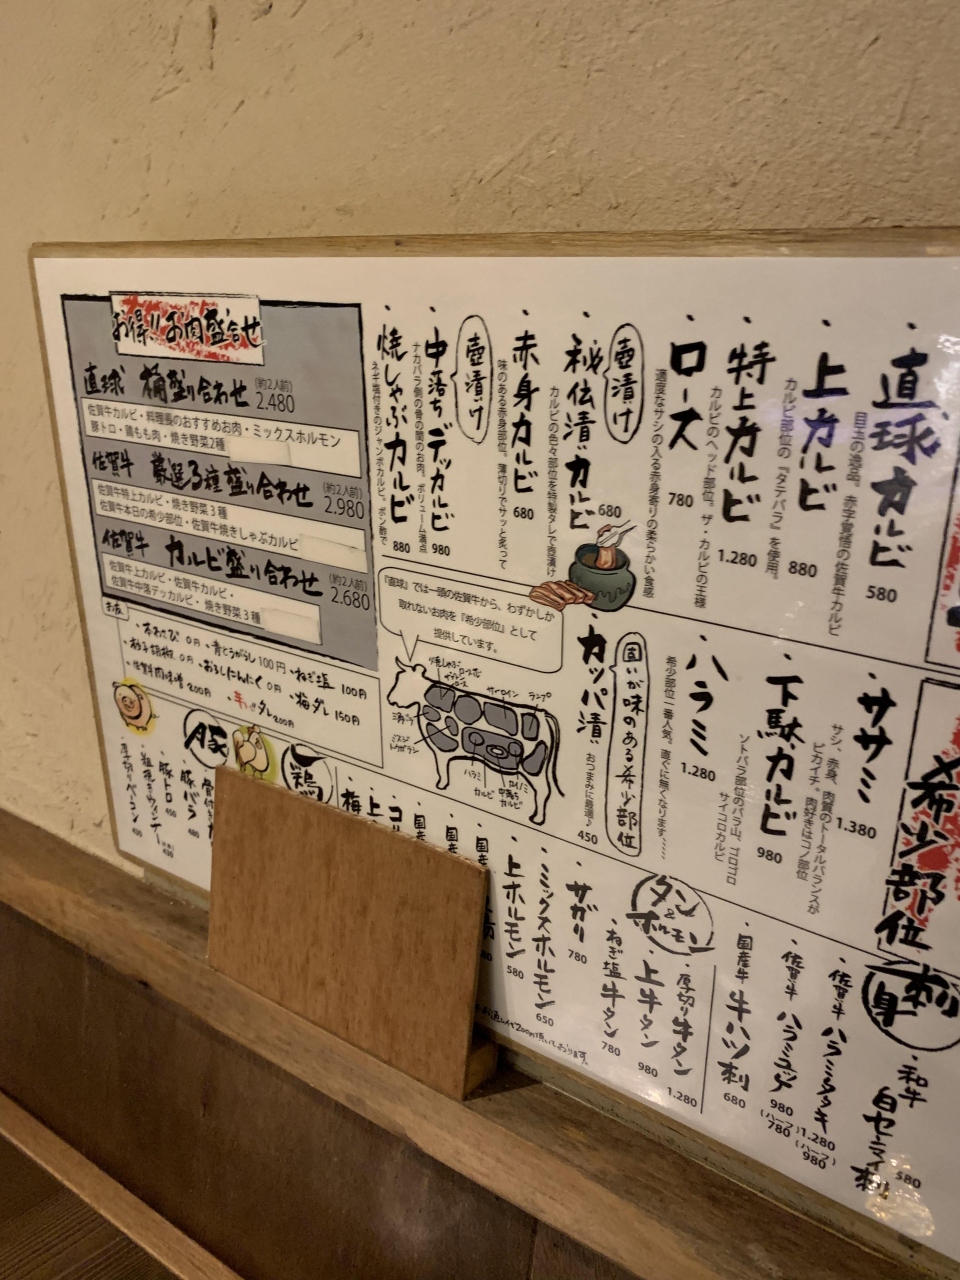 お得!!お肉盛合せ
直球 桶盛り合わせ (約2人前) 2.480
佐賀牛カルビ・料理長のおすすめお肉・ミックスホルモン
豚トロ・鶏もも肉・焼き野菜2種
佐賀牛 厳選3種盛り合わせ (約2人前) 2.980
佐賀牛特上カルビ・焼き野菜3種
佐賀牛本日の希少部位・佐賀牛焼きしゃぶカルビ
佐賀牛 カルビ盛り合わせ (約2人前) 2.680
佐賀牛上カルビ・佐賀牛カルビ・
佐賀牛中落デッカルビ・焼き野菜3種
・本わさび 0円 ・青とうがらし 100円 ・ねぎ塩 100円
・柚子胡椒 0円 ・おろしにんにく 0円 ・梅ダレ 150円
・佐賀牛肉味噌 200円 ・辛いダレ 200円
・直球カルビ 580
目玉の逸品。赤字覚悟の佐賀牛カルビ
・上カルビ 880
カルビ部位の『タテバラ』を使用。
・特上カルビ 1.280
カルビのヘッド部位。ザ・カルビの王様
・ロース 780
適度なサシの入る赤身寄りの柔らかい食感
壺漬け
・秘伝漬カルビ 680
カルビの色々部位を特製タレで壺漬け
・赤身カルビ 680
味のある赤身部位。薄切りでサッと炙って
壺漬け
・中落ちデッカルビ 980
ナカバラ側の骨の間のお肉。ボリューム満点
・焼しゃぶカルビ 880
ネギ塩付きのジャンボカルビ。ポン酢で
『直球』では一頭の佐賀牛から、わずかしか
取れないお肉を『希少部位』として
提供しています。
サーロイン
ランプ
ミスジ
トウガラシ
ハラミ
カルビ
カイノミ
中落ち
カルビ
希少部位
・ササミ 1.380
サシ、赤身、肉質のトータルバランスが
ピカイチ。肉好きはコノ部位
・下駄カルビ 980
ソトバラ部位のバラ山、ゴロゴロ
サイコロカルビ
・ハラミ 1.280
希少部位一番人気。直ぐに無くなります……
固いが味のある希少部位
・カッパ漬 450
おつまみに最適♪
刺身
・和牛 白センマイ刺 580
・佐賀牛 ハラミタタキ 1.280
(ハーフ) 980
・佐賀牛 ハラミユッケ 980
(ハーフ) 780
・国産牛 牛ハツ刺 680
タン&ホルモン
・厚切り牛タン 1.280
・上牛タン 980
・ねぎ塩牛タン 780
・サガリ 780
・ミックスホルモン 650
・上ホルモン 580
・国産
・国産
・国産
鶏
豚
・豚バラ 480
・豚トロ 450
・粗挽きウィンナー 450
・厚切りベーコン 450